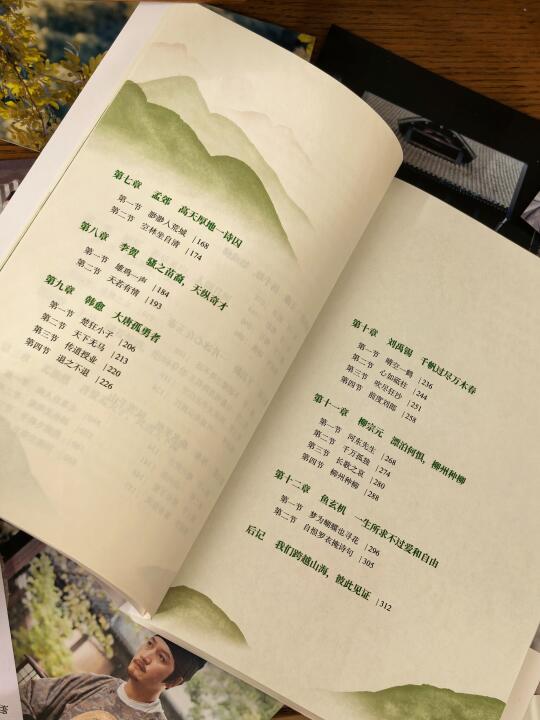 第七章 孟郊 高天厚地一诗囚
第一节 渺渺人荒城 |168
第二节 空林坐自清 |174
第八章 李贺 骚之苗裔,天纵奇才
第一节 雄鸡一声 |184
第二节 天若有情 |193
第九章 韩愈 大唐孤勇者
第一节 楚狂小子 |206
第二节 天下无马 |213
第三节 传道授业 |220
第四节 退之不退 |226
第十章 刘禹锡 千帆过尽万木春
第一节 晴空一鹤 |236
第二节 心如砥柱 |244
第三节 吹尽狂沙 |251
第四节 前度刘郎 |258
第十一章 柳宗元 漂泊何惧,柳州种柳
第一节 河东先生 |268
第二节 千万孤独 |274
第三节 长歌之哀 |280
第四节 柳州种柳 |288
第十二章 鱼玄机 一生所求不过爱和自由
第一节 梦为蝴蝶也寻花 |296
第二节 自恨罗衣掩诗句 |305
后记 我们跨越山海,彼此见证 |312